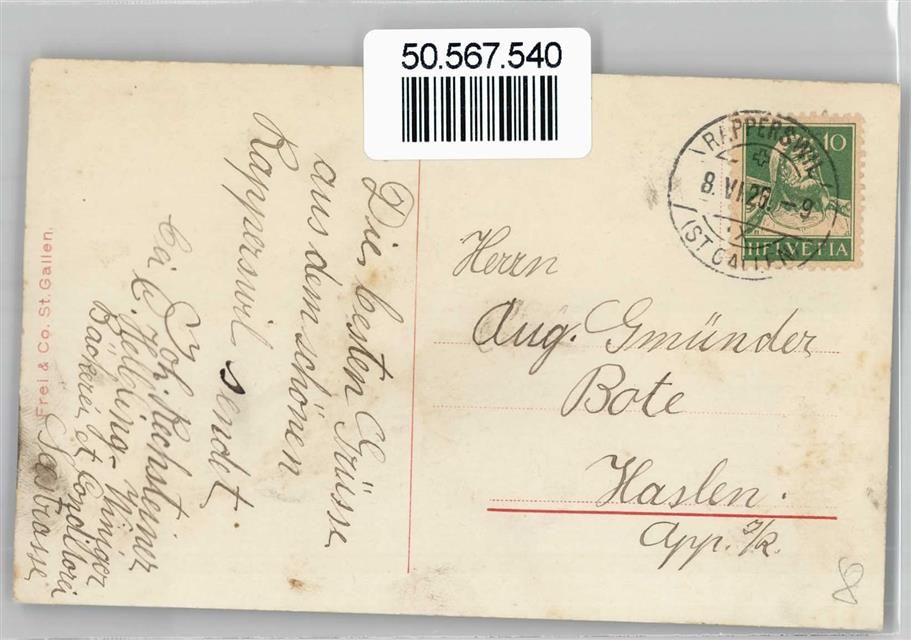 50.567.540
Die besten Grüsse
aus dem schönen
Rapperswil sendet.
Joh. Rechsteiner
bei C. Helbling-Winiger
Bäckerei et Conditorei
Seestrasse
Frei & Co. St. Gallen.
RAPPERSWIL
8. VI 26. - 9
(ST. GALLEN)
10
HELVETIA
Herrn
Aug. Gmünder
Bote
Haslen.
App. I/R.
8